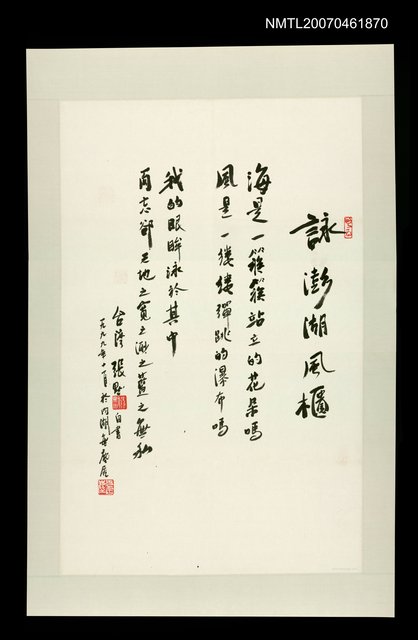 NMTL20070461870
詠澎湖風櫃
海是一簇簇站立的花朵嗎
風是一縷縷彈跳的瀑布嗎
我的眼眸泳於其中
而忘卻天地之寬之淵之藍之無私
台灣 張默 自書
一九九九年十一月於內湖無塵居